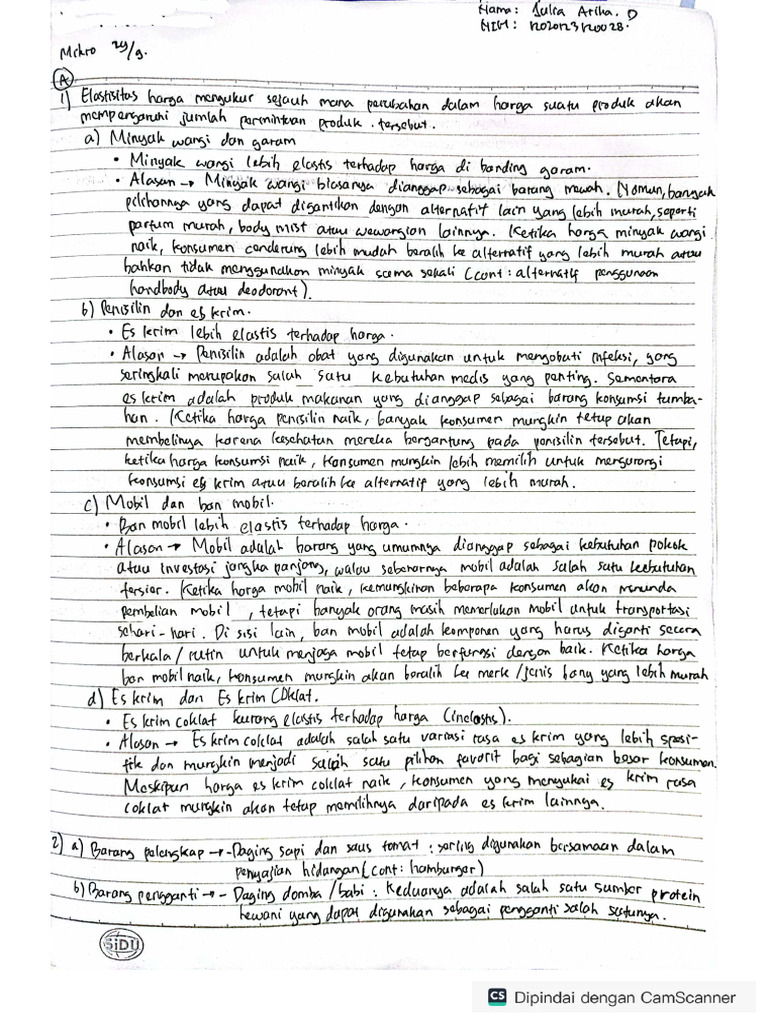 Nama: Julia Arika. D
NIM: 12020123120028.
Mikro 29/9.
A
1) Elastisitas harga mengukur sejauh mana perubahan dalam harga suatu produk akan
mempengaruhi jumlah permintaan produk tersebut.
a) Minyak wangi dan garam
• Minyak wangi lebih elastis terhadap harga di banding garam.
• Alasan → Minyak wangi biasanya dianggap sebagai barang mewah. Namun, banyak
pilihannya yang dapat digantikan dengan alternatif lain yang lebih murah, seperti
parfum murah, body mist atau wewangian lainnya. Ketika harga minyak wangi
naik, konsumen cenderung lebih mudah beralih ke alternatif yang lebih murah atau
bahkan tidak menggunakan minyak sama sekali (cont: alternatif penggunaan
handbody atau deodorant).
b) Penisilin dan es krim.
• Es krim lebih elastis terhadap harga.
• Alasan → Penisilin adalah obat yang digunakan untuk mengobati infeksi, yang
seringkali merupakan salah satu kebutuhan medis yang penting. Sementara
es krim adalah produk makanan yang dianggap sebagai barang konsumsi tumba-
han. Ketika harga penisilin naik, banyak konsumen mungkin tetap akan
membelinya karena kesehatan mereka bergantung pada penisilin tersebut. Tetapi,
ketika harga konsumsi naik, konsumen mungkin lebih memilih untuk mengurangi
konsumsi es krim atau beralih ke alternatif yang lebih murah.
c) Mobil dan ban mobil.
• Ban mobil lebih elastis terhadap harga.
• Alasan → Mobil adalah barang yang umumnya dianggap sebagai kebutuhan pokok
atau investasi jangka panjang, walau sebenarnya mobil adalah salah satu kebutuhan
tersier. Ketika harga mobil naik, kemungkinan beberapa konsumen akan menunda
pembelian mobil, tetapi banyak orang masih memerlukan mobil untuk transportasi
sehari-hari. Di sisi lain, ban mobil adalah komponen yang harus diganti secara
berkala/rutin untuk menjaga mobil tetap berfungsi dengan baik. Ketika harga
ban mobil naik, konsumen mungkin akan beralih ke merk/jenis bany yang lebih murah
d) Es krim dan Es krim Coklat.
• Es krim coklat kurang elastis terhadap harga (inelastis).
• Alasan → Es krim coklat adalah salah satu variasi rasa es krim yang lebih spesi-
fik dan mungkin menjadi salah satu pilihan favorit bagi sebagian besar konsumen.
Meskipun harga es krim coklat naik, konsumen yang menyukai es krim rasa
coklat mungkin akan tetap memilihnya daripada es krim lainnya.
2) a) Barang pelengkap → - Daging sapi dan saus tomat : sering digunakan bersamaan dalam
penyajian hidangan (cont: hamburger)
b) Barang pengganti → - Daging domba / babi : Keduanya adalah salah satu sumber protein
hewani yang dapat digunakan sebagai pengganti salah satunya.
SiDU
CS Dipindai dengan CamScanner